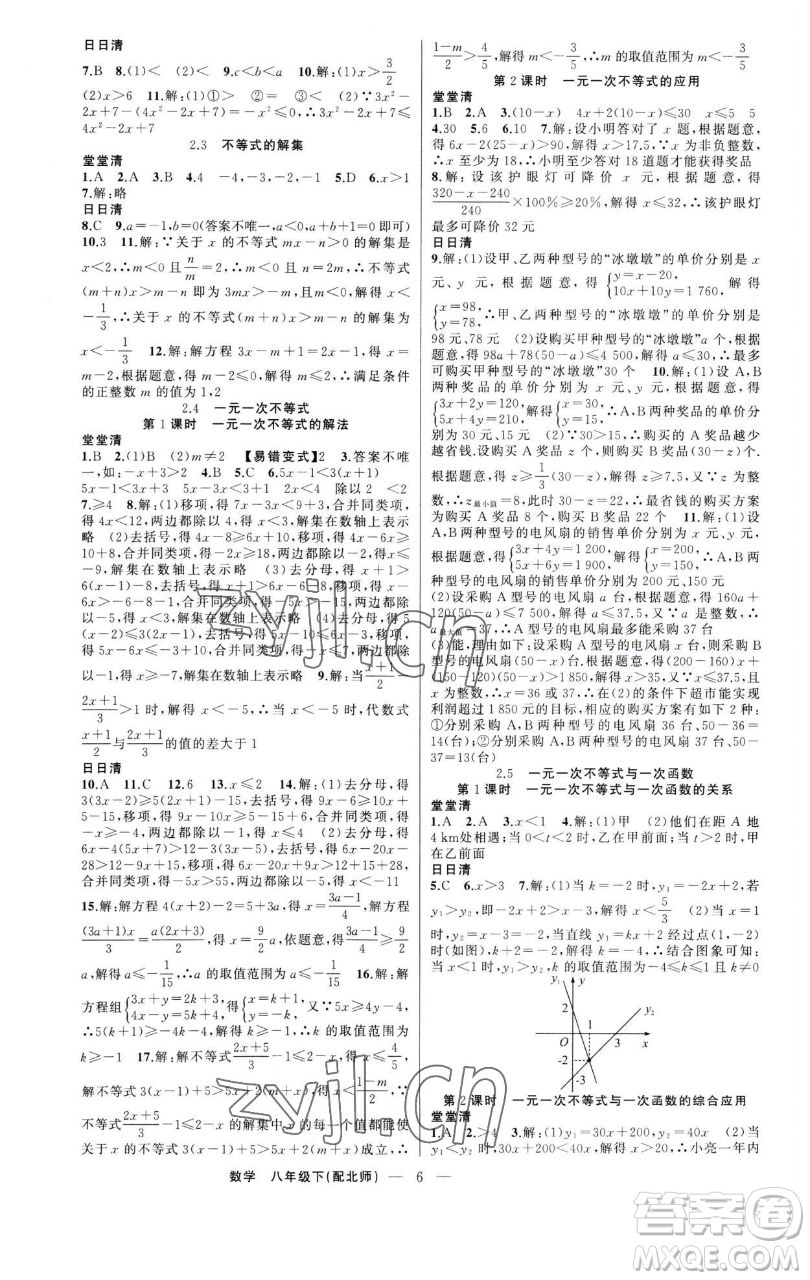 日日清
7.B 8.(1)< (2)< 9.c<b<a 10.解:(1)x>3/2
(2)x>6 11.解:(1)①> ②= ③< (2)∵3x²-
2x+7-(4x²-2x+7)=-x²≤0,∴3x²-2x+7≤
4x²-2x+7
2.3 不等式的解集
堂堂清
1.A 2.A 3.B 4.4 -4,-3,-1 5.D 6.x>1
7.解:略
日日清
8.C 9.a=-1,b=0(答案不唯一,a<0,a+b+1=0即可)
10.3 11.解:∵关于 x 的不等式 mx-n>0 的解集为
x<1/2,∴m<0 且 n/m=1/2,∴m=2n,∴不等式
(m+n)x>m-n 即为 3nx>n,且 n<0,解得 x<
1/3,∴关于 x 的不等式(m+n)x>m-n 的解集为
x<1/3 12.解:解方程 3x-m+1=2x-1,得 x=
m-2,根据题意,得 m-2≤0,解得 m≤2,∴满足条件
的正整数 m 的值为 1,2
2.4 一元一次不等式
第1课时 一元一次不等式的解法
堂堂清
1.B 2.(1)B (2)m≠2 【易错变式】2 3.答案不唯
一,如:-x+3>2 4.B 5.C 6.5x-1<3(x+1)
5x-1<3x+3 5x-3x<3+1 2x<4 除以2 <2
7.≥4 8.解:(1)移项,得 7x-3x<9+3,合并同类项,
得 4x<12,两边都除以 4,得 x<3,解集在数轴上表示
略 (2)去括号,得 4x-8≥6x+10,移项,得 4x-6x≥
10+8,合并同类项,得-2x≥18,两边都除以-2,得 x≤
-9,解集在数轴上表示略 (3)去分母,得 2(x+1)>
6(x-1)-8,去括号,得 2x+2>6x-6-8,移项,得 2x-
6x>-6-8-2
x<4,解集在数轴上表示略
x≥-7,解集在数轴上表示略 9.解:当(x+1)/2-
(2x+1)/3>1 时,解得 x<-5,∴当 x<-5 时,代数式
(x+1)/2 与 (2x+1)/3 的值的差大于 1
日日清
10.A 11.C 12.6 13.x≤2 14.解:(1)去分母,得
3(3x-2)≥5(2x+1)-15,去括号,得 9x-6≥10x+
5-15,移项,得 9x-10x≥5-15+6,合并同类项,得
-x≥-4,解得 x≤4 (2)去分母,得 6x-20-
移项,得 6x-20x-
合并同类项,得
15.解:解方程 4(x+2)-2=5+3a,得 x=(3a-1)/4,解方程
(3a+1)x/3=a(2x+3)/2,得 x=9/2 a,依题意,得(3a-1)/4≥9/2
a,解得 a≤-1/15,∴a 的取值范围为 a≤-1/15 16.解:解
方程组{3x+y=2k, 4x-y=5k-2,
∴5(k+2)≥-4k-4,解得 k≥-1,∴k 的取值范围
为 k≥-1 17.解:解不等式(2x+5)/3-1≤2-x,得 x≤4/5,
解不等式 3(x-1)+5>5x+2(m+x),得 x<(1-m)/2,∵
不等式(2x+5)/3-1≤2-x 的解集中 x 的每一个值都能使
关于 x 的不等式 3(x-1)+5>5x+2(m+x)成立,∴
(1-m)/2>4/5,解得 m<-3/5,∴m 的取值范围为 m<-3/5
第2课时 一元一次不等式的应用
堂堂清
1.B 2.A 3.(10-x) 4x+2(10-x)≤30 x≤5 5
4.30 5.6 6.10 7.解:设小明答对了 x 题,根据题意,
得 6x-2(25-x)>90,解得 x>17.5,∵x 为非负整数,
∴x 至少为 18,∴小明至少答对 18 道题才能获得奖品
8.解:设该护眼灯可降价 x 元,根据题意,得
(320-x-240)/240×100%≥20%,解得 x≤32,∴该护眼灯
最多可降价 32 元
日日清
9.解:(1)设甲、乙两种型号的“冰墩墩”的单价分别是 x
元、y 元,根据题意,得{y=x-20, 10x+10y=1 760, 解得
{x=98, y=78, ∴甲、乙两种型号的“冰墩墩”的单价分别是
98 元、78 元 (2)设购买甲种型号的“冰墩墩”a 个,根据
题意,得 98a+78(50-a)
可购买甲种型号的“冰墩墩”30 个 10.解:(1)设 A,B
两种奖品的单价分别为 x 元、y 元,根据题意,得
{3x+2y=120, 5x+4y=210, 解得{x=30, y=15, ∴A,B 两种奖品的单价分
别为 30 元、15 元
根据题意,得 z≥1/3(30-z),解得 z≥7.5,又∵z 为整
数,∴z最小值=8,此时 30-8=22,∴最省钱的购买方案
为购买 A 奖品 8 个,购买 B 奖品 22 个 11.解:(1)设
A,B 两种型号的电风扇的销售单价分别为 x 元、y 元,
根据题意,得{3x+4y=1 200, 5x+6y=1 900, 解得{x=200, y=150, ∴A,B 两
种型号的电风扇的销售单价分别为 200 元、150 元
(2)设采购 A 种型号的电风扇 a 台,根据题意,得 160a+
120(50-a)≤7 500,解得 a≤37.5,又∵a 是整数,
∴a最大值=37,∴A 种型号的电风扇最多能采购 37 台
(3)能,理由如下:设采购 A 型号电风扇 x 台,则采购 B
型号的电风扇(50-x)台,根据题意,得(200-160)x+
(150-120)(50-x)>1 850,解得 x>35,∵x≤37.5,且
x 为整数,∴x=36 或 37,∴在(2)的条件下超市能实现
利润超过 1 850 元的目标,相应的采购方案有如下 2 种:
①分别采购 A,B 两种型号的电风扇 36 台、50-36=
14(台);②分别采购 A,B 两种型号的电风扇 37 台、50-
37=13(台)
2.5 一元一次不等式与一次函数
第1课时 一元一次不等式与一次函数的关系
堂堂清
1.A 2.A 3.x<1 4.解:(1)甲 (2)他们在距 A 地
4 km处相遇;当 0<t<2 时,乙在甲前面;当 t>2 时,甲
在乙前面
日日清
5.C 6.x>3 7.解:(1)当 k=-2 时,y₁=-2x+2,若
y₁>y₂,即-2x+2>x-3,解得 x<5/3 (2)当 x=1
时,y₂=x-3=-2,当直线 y₁=kx+2 经过点(1,-2)
时(如图),k+2=-2,解得 k=-4,∴结合图象可知:
当 x<1 时,y₁>y₂
y y₂ 2 1 O 3 x -2 -3
第2课时 一元一次不等式与一次函数的综合应用
堂堂清
1.A 2.A 3.解:(1)y₁=30x+200,y₂=40x (2)当
y₁<y₂ 时,30x+200<40x,解得 x>20,∴小亮一年内
数学 八年级下(配北师) — 6 —
zyjl.cn
zyjl.cn
答案卷
MXQE.COM